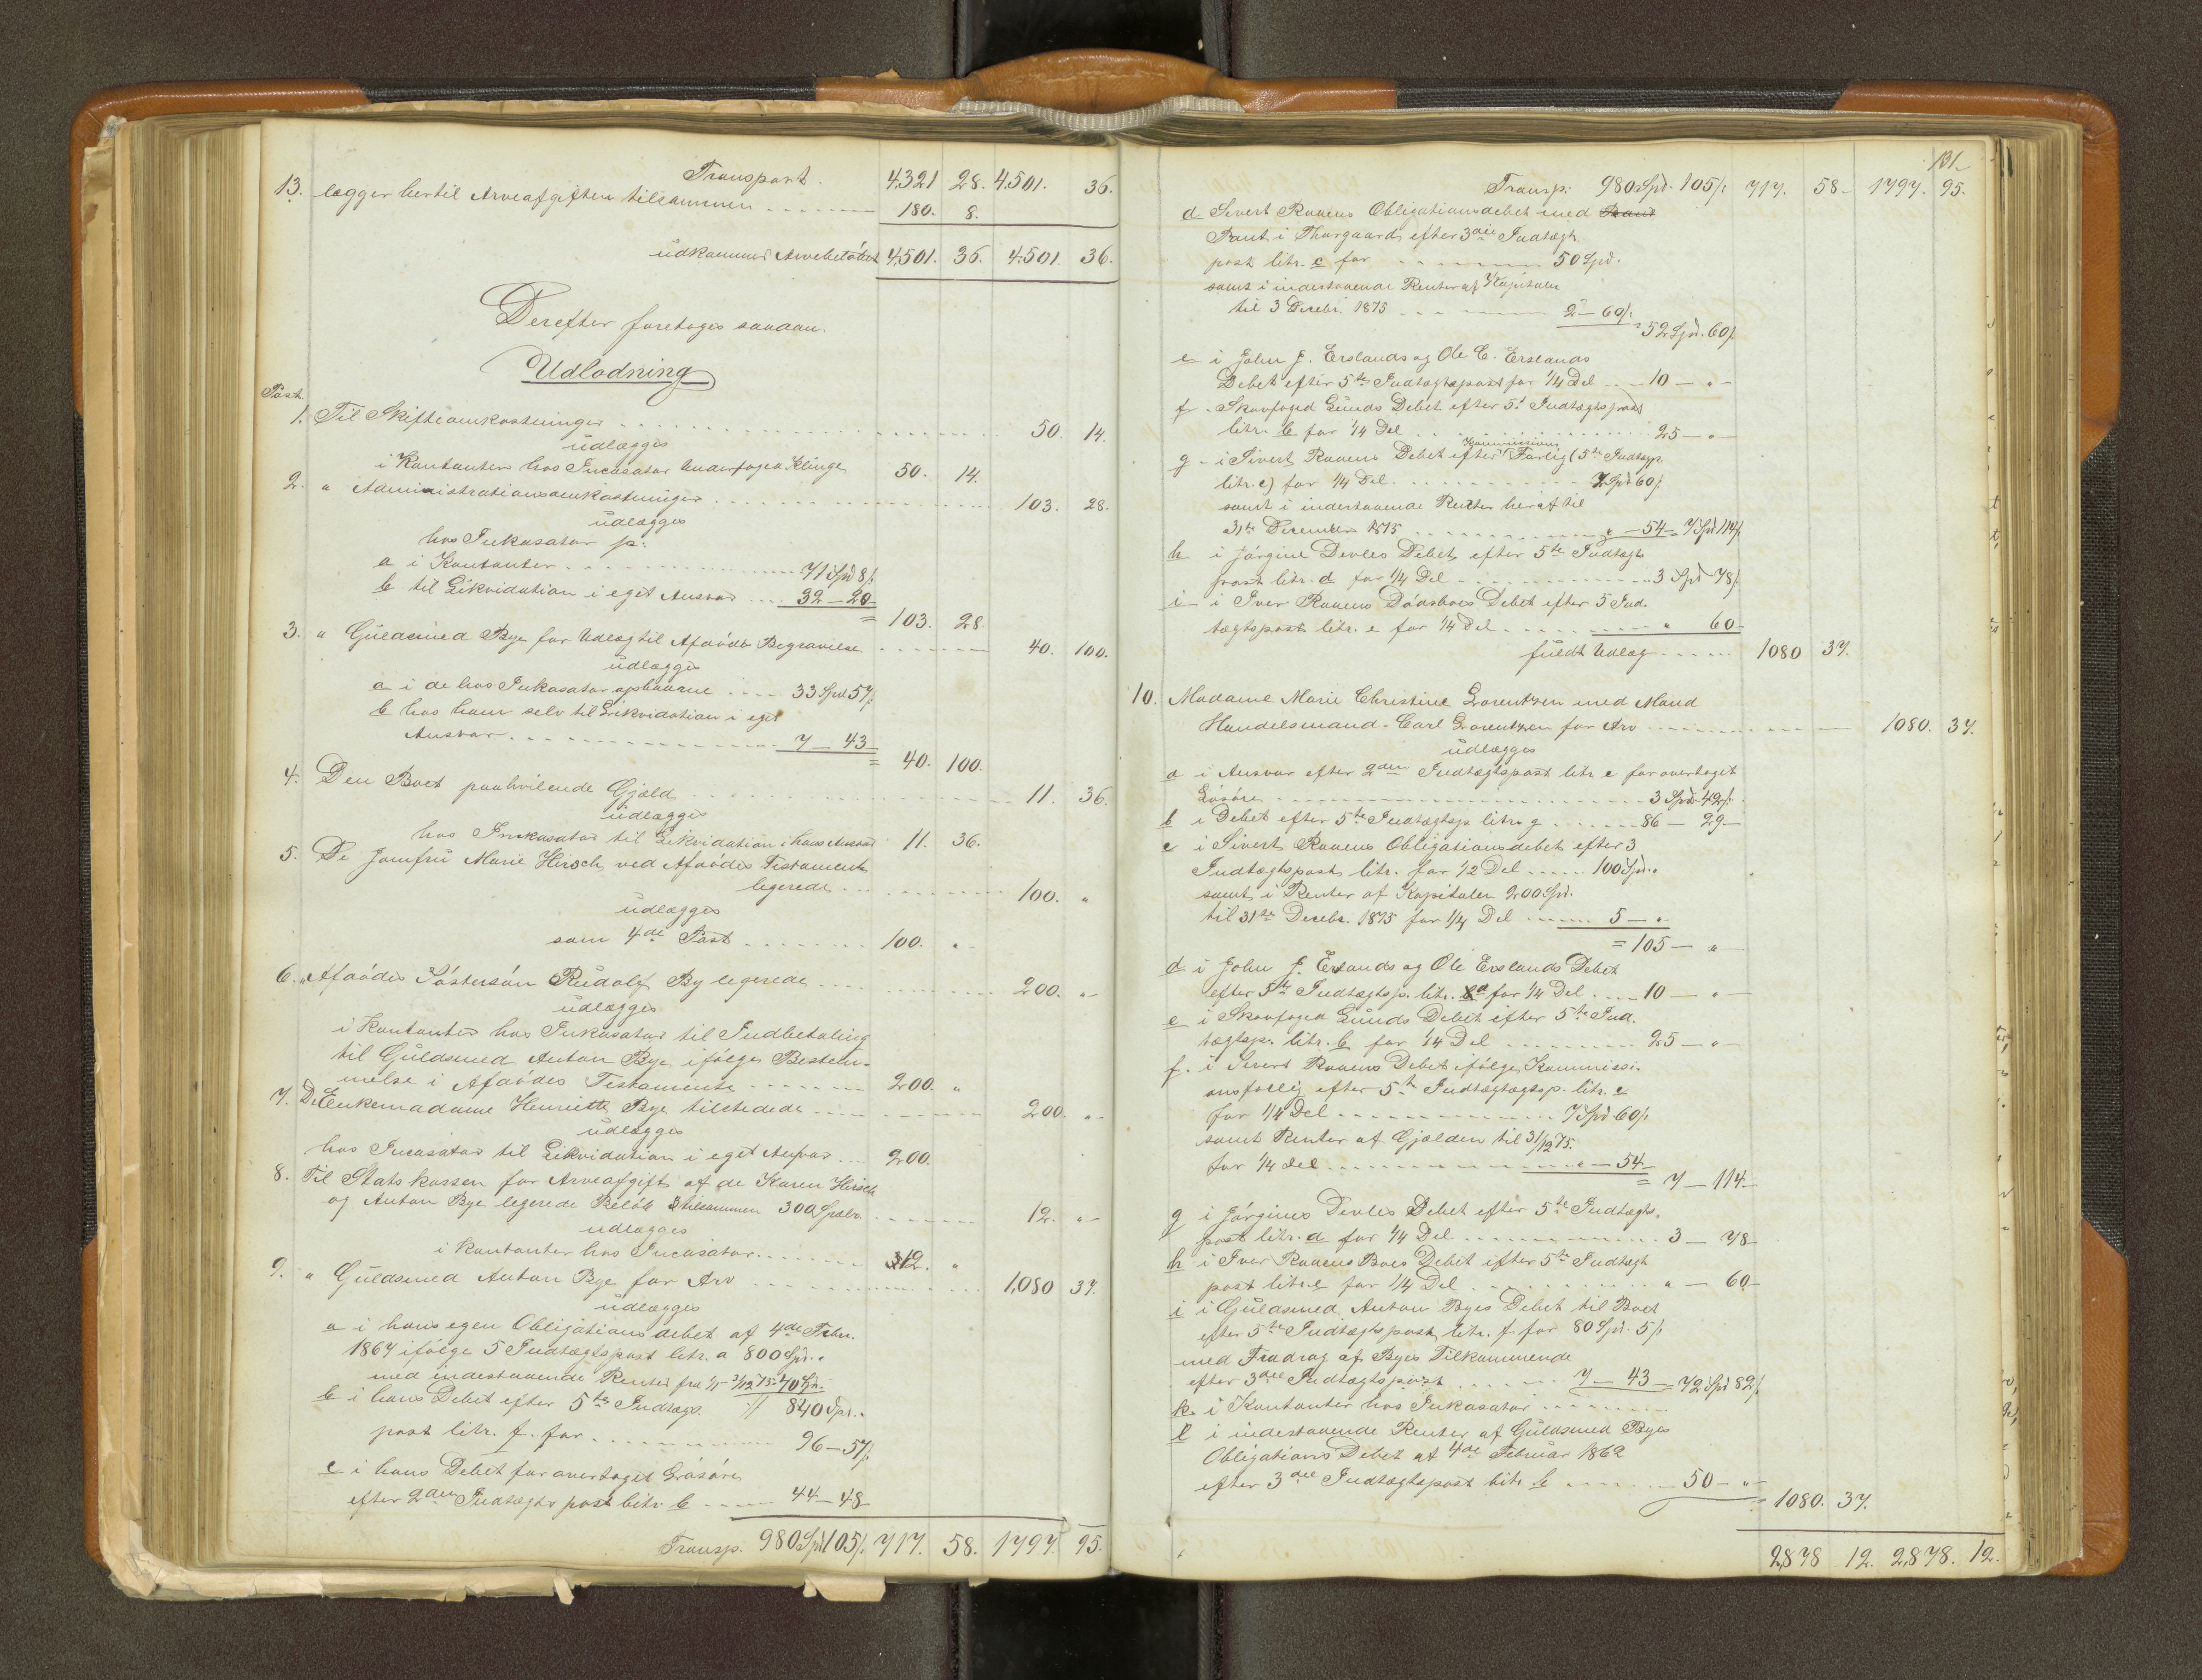 Transport. 4321 28. 4501. 36.
13. lægger hertil Arveafgiften tilsammen 180. 8.
udkommer Arvebeløbet 4501. 36. 4501. 36.
Derefter foretoges saadan
Udlodning
Post
1. Til Skifteomkostninger 50. 14.
udlægges
i Kontanter hos Incasator Underfoged Klinge 50. 14.
2. " Administrationsomkostninger 103. 28.
udlægges
hos Inkasator p:
a i Kontanter 71 Spd 8/:
b til Likvidation i eget Ansvar 32 – 20
= 103. 28.
3. " Guldsmed Bye for Udlæg til Afdødes Begravelse 40. 100.
udlægges
a i de hos Inkasator opbaarne 33 Spd 57/:
b hos ham selv til Likvidation i eget
Ansvar 7 – 43
= 40. 100.
4. Den Boet paahvilende Gjæld 11. 36.
udlægges
hos Inkasator til Likvidation i hans Ansvar 11. 36.
5. De Jomfru Marie Hirsch ved Afdødes Testament
legerede 100. "
udlægges
som 4de Post 100. "
6. " Afdødes Søstersøn Rudolf By legerede 200. "
udlægges
i Kontanter hos Inkasator til Indbetaling
til Guldsmed Anton Bye ifølge Bestem-
melse i Afdødes Testamente 200. "
7. De Enkemadame Henriette Bye tilstedede 200. "
udlægges
hos Incasator til Likvidation i eget Ansvar 200.
8. Til Statskassen for Arveafgift af de Karen Hirsch
og Anton Bye legerede Beløb tilsammen 300 Spdlr 12. "
udlægges
i Kontanter hos Incasator 12. "
9. " Guldsmed Anton Bye for Arv 1,080 37.
udlægges
a i hans egen Obligationsdebet af 4de Febr.
1864 ifølge 5 Indtægtspost litr. a 800 Spd. "
med indestaaende Renter fra 1/1 – 31/12 75 40 Spd.
840 Spd. "
b i hans Debet efter 5te Indtægts
post litr. f. for 96 – 57/:
c i hans Debet for overtaget Løsøre
efter 2den Indtægtspost litr b 44 – 48
Transp. 980 Spd 105/: 717. 58. 1797. 95.
131.
Transp: 980 Spd. 105/: 717. 58 – 1797. 95.
d Sivert Raaens Obligationsdebet med Pant
Pant i Thorgaard efter 3die Indtægts
post litr. c for 50 Spd.
samt i indestaaende Renter af Kapitalen
til 3 Decebr. 1875 2 – 60/:
= 52 Spd. 60/:
e i John J. Erslands og Ole E. Erslands
Debet efter 5te Indtægtspost for 1/4 Del 10 – " –
f – Skovfoged Lunds Debet efter 5t Indtægtspost
litr. b for 1/4 Del 25 – " –
g – i Sivert Raaens Debet efter Kommissions Forlig (5te Indtægp.
litr. c) for 1/4 Del 7 Spd 60/:
samt i indestaaende Renter heraf til
31te December 1875 " – 54 = 7 Spd 114/:
h i Jørgine Devles Debet efter 5te Indtægts
post litr. d for 1/4 Del 3 Spd 78/:
i i Iver Raaens Dødsboes Debet efter 5 Ind-
tægtspost litr. e for 1/4 Del " 60 –
fuldt Udlæg 1080 37.
10. Madame Marie Christine Lorentzen med Mand
Handelsmand Carl Lorentzen for Arv 1080. 37.
udlægges
a i Ansvar efter 2den Indtægtspost litr. c for overtaget
Løsøre 3 Spd. 42/:
b i Debet efter 5te Indtægtsp. litr. g 86 – 29 –
c i Sivert Raaens Obligationsdebet efter 3
Indtægtspost litr. for 1/2 Del 100 Spd. "
samt i Renter af Kapitalen 200 Spd.
til 31te Decebr. 1875 for 1/4 Del 5 – "
= 105 – "
d i John J. Erslands og Ole Erslands Debet
efter 5te Indtægtsp. litr. a for 1/4 Del 10 – " –
e i Skovfoged Lunds Debet efter 5te Ind-
tægtsp. litr. b for 1/4 Del 25 – " –
f. i Sivert Raaens Debet ifølge Kommissi-
onsforlig efter 5te Indtægtsp. litr. c
for 1/4 Del 7 Spd 60/:
samt Renter af Gjælden til 31/12 75.
for 1/4 del " – 54
= 7 – 114 –
g i Jørgines Devles Debet efter 5te Indtægts-
post litr. d for 1/4 Del 3 – 78
h i Iver Raaens Boes Debet efter 5te Indtægts
post litr. e for 1/4 Del " – 60 –
i i Guldsmed Anton Byes Debet til Boet
efter 5te Indtægtspost litr. f for 80 Spd. 5/:
med Fradrag af Byes Tilkommende
efter 3die Indtægtspost 7 – 43 = 72 Spd 82/:
k. i Kontanter hos Inkasator
l i indestaaende Renter af Guldsmed Byes
Obligations Debet af 4de Februar 1862
efter 3die Indtægtspost litr b 50 – "
= 1080. 37.
2,878 12. 2,878. 12.